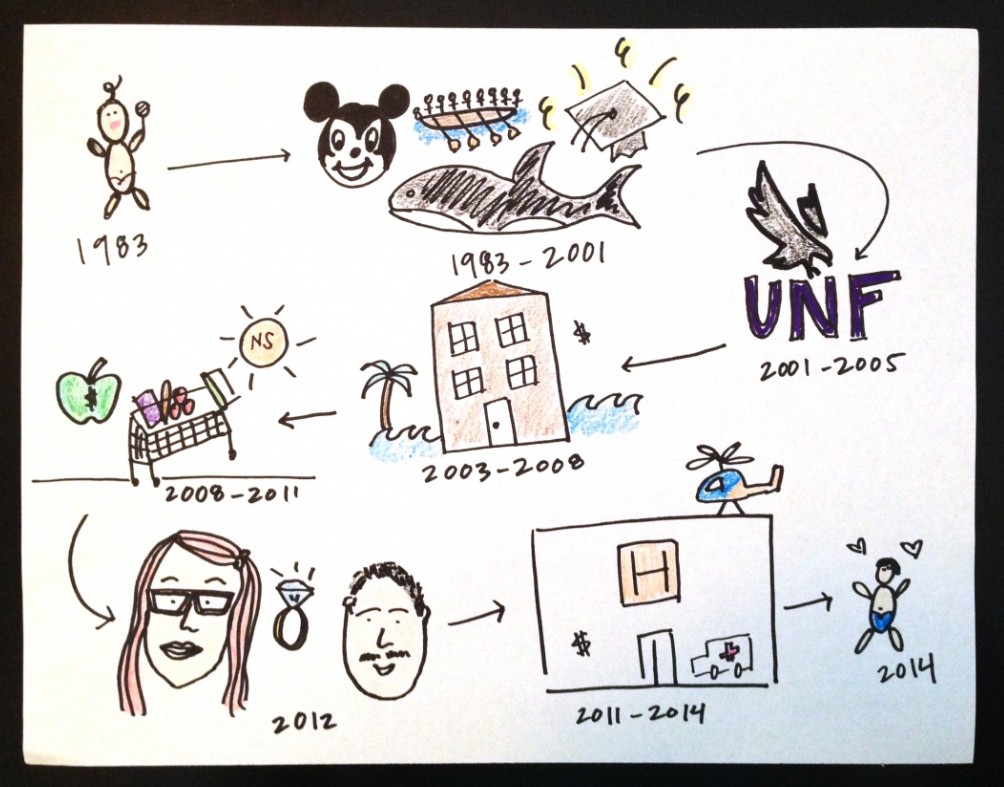 1983
1983-2001
UNF
2001-2005
$
2003-2008
NS
$
2008-2011
2012
H
$
2011-2014
2014